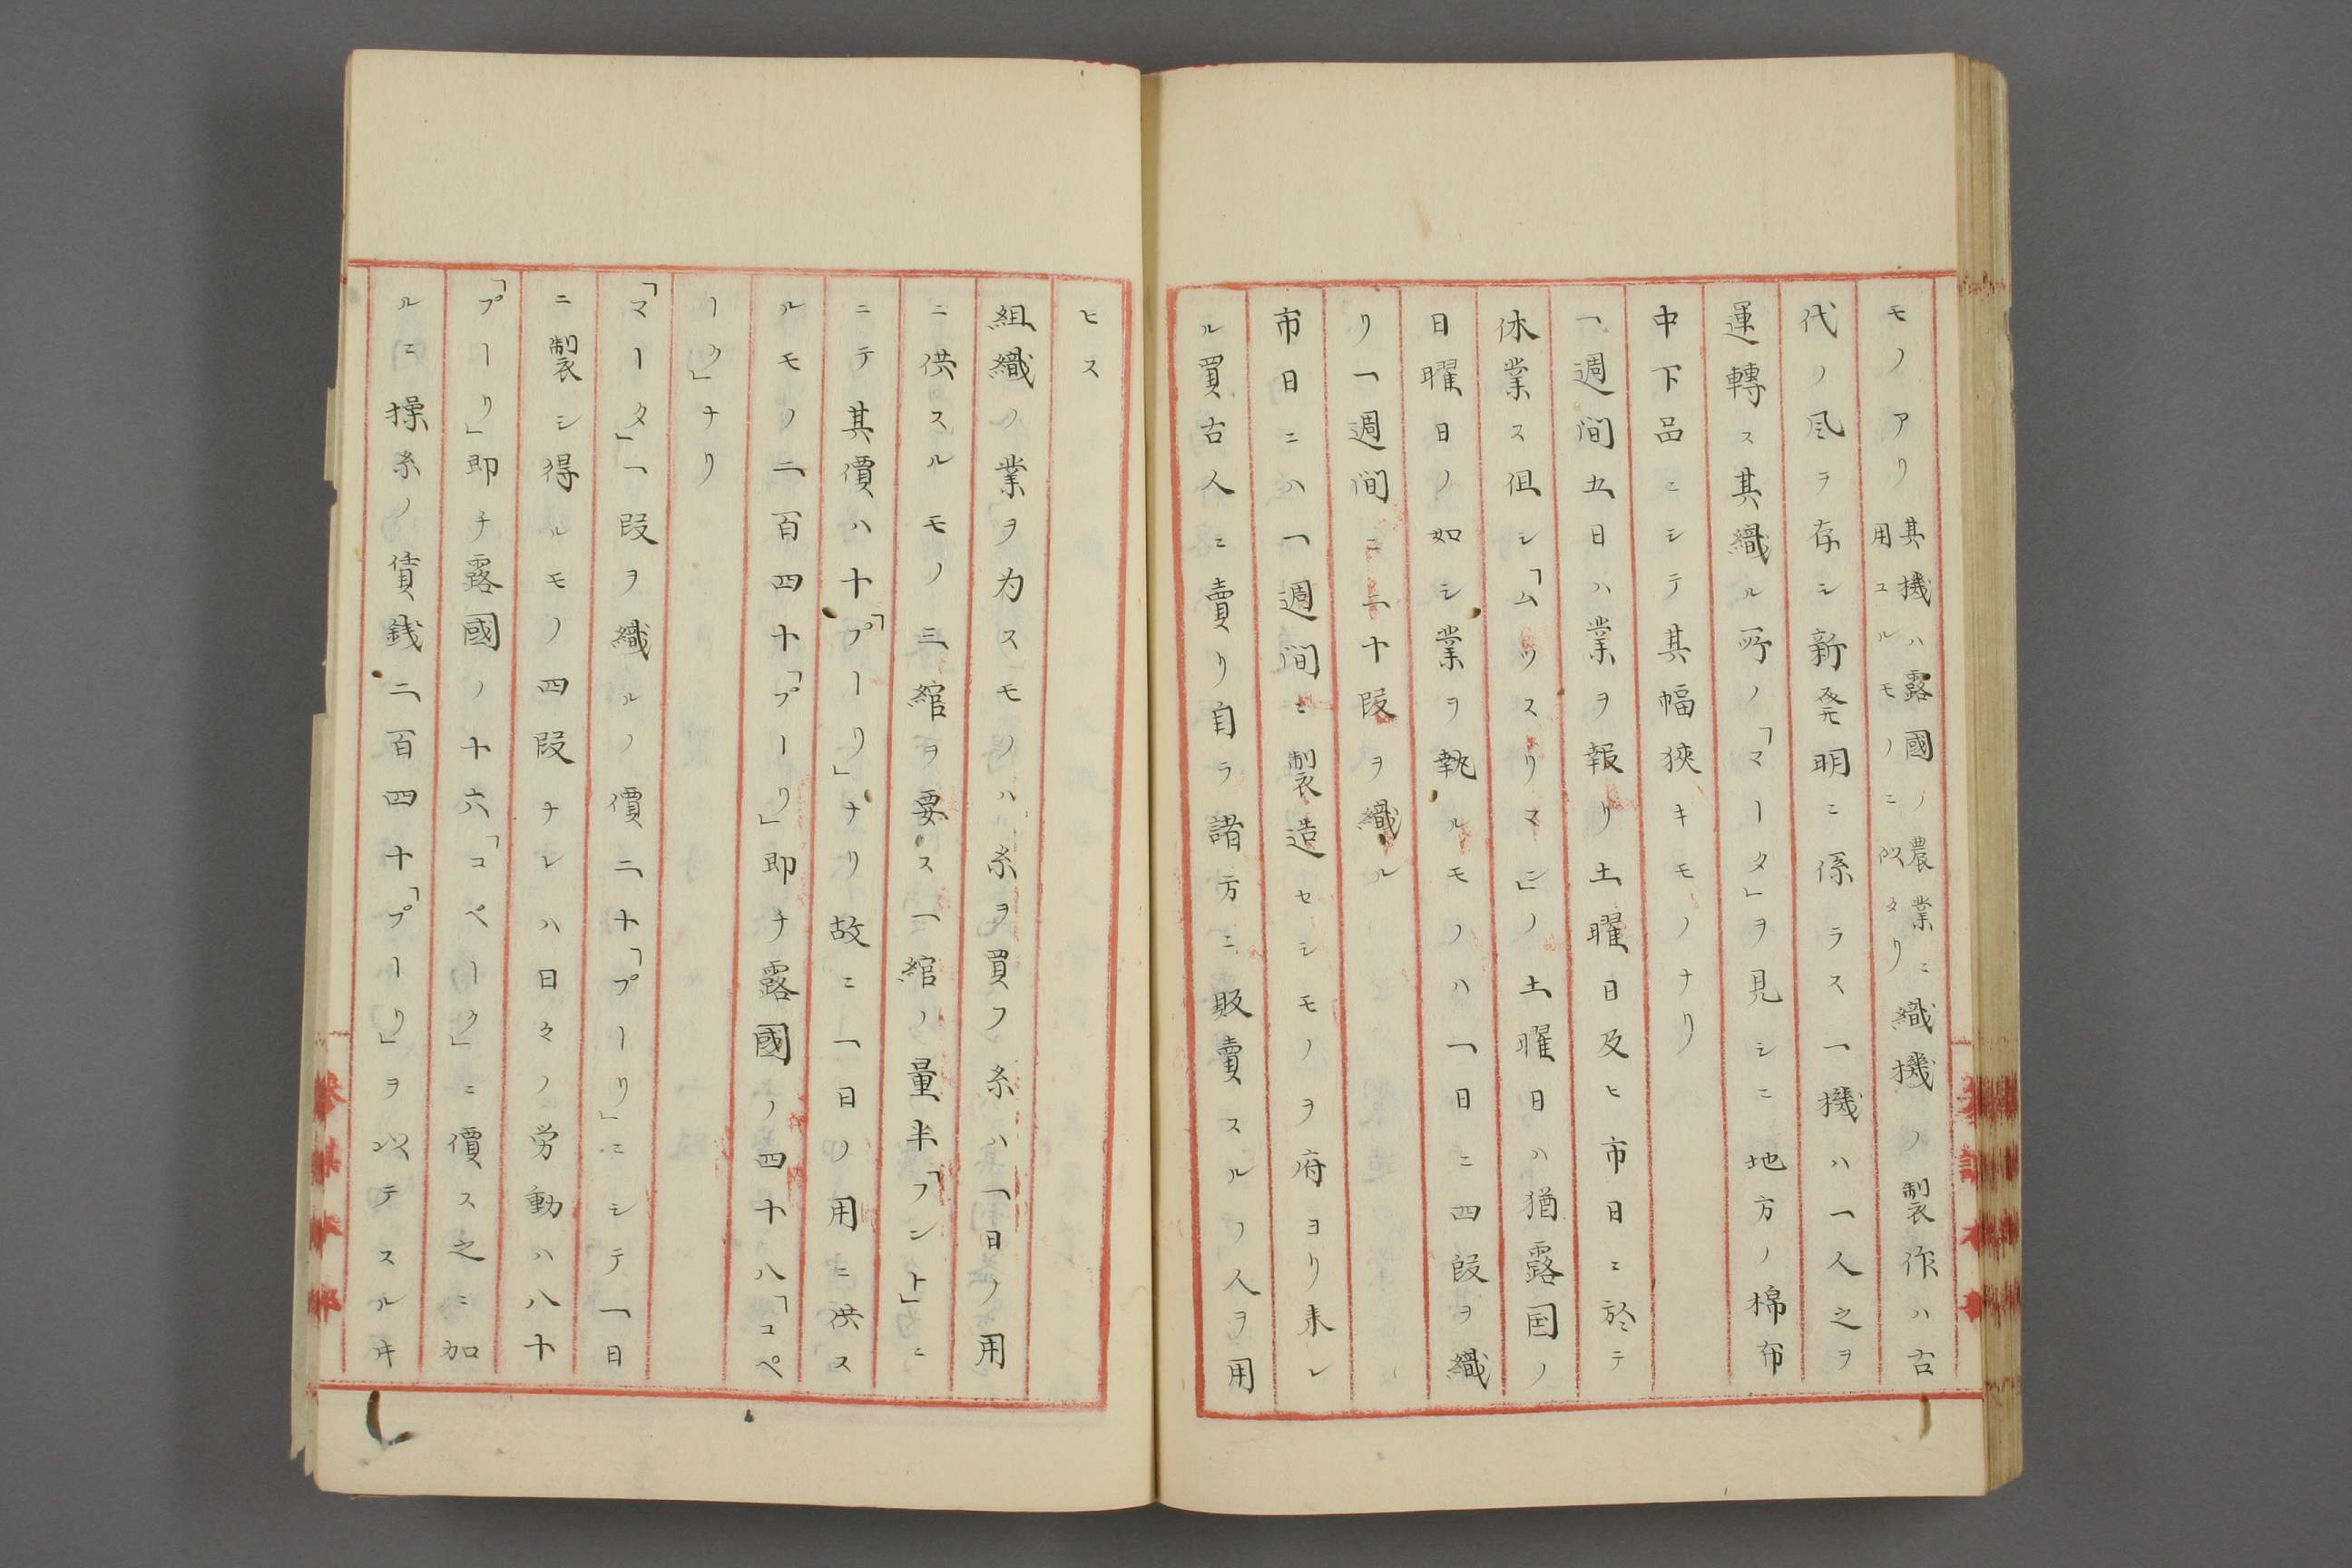 モノアリ其機ハ露國ノ農業ニ用ユルモノニ似タリ織機ノ製作ハ古
代ノ風ヲ存シ新発明ニ係ラス一機ハ一人之ヲ
運轉ス其織ル所ノ「マータ」ヲ見シニ地方ノ棉布
中下品ニシテ其幅狹キモノナリ
一週间五日ハ業ヲ報リ土曜日及ヒ市日ニ於テ
休業ス但シ「ムツスリマン」ノ土曜日ハ猶露国ノ
日曜日ノ如シ業ヲ執ルモノハ一日ニ四段ヲ織
リ一週间ニ二十段ヲ織ル
市日ニハ一週间ニ製造セシモノヲ府ヨリ来レ
ル買古人ニ賣リ自ラ諸方ニ販賣スルノ人ヲ用
ヒス
組織ノ業ヲ为スモノハ糸ヲ買フ糸ハ一日ノ用
ニ供スルモノ三綰ヲ要ス一綰ノ量半「フント」ニ
ニテ其價ハ十「プーリ」ナリ故ニ一日ノ用ニ供ス
ルモノ二百四十「プーリ」即チ露國ノ四十八「コペ
ーク」ナリ
「マータ」一段ヲ織ルノ價二十「プーリ」ニシテ一日
ニ製シ得ルモノ四段ナレハ日々ノ労動ハ八十
「プーリ」即チ露國ノ十六「コペーク」ニ價ス之ニ加
ルニ操糸ノ賃銭二百四十「プーリ」ヲ以テスルヰ
參謀本部